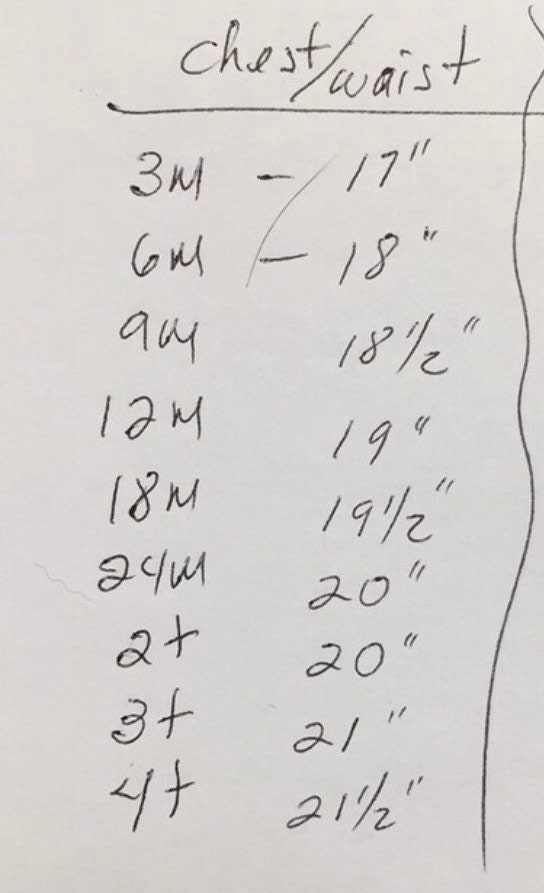 chest/waist
3M - 17"
6M - 18"
9M 18 1/2"
12M 19"
18M 19 1/2"
24M 20"
2t 20"
3t 21"
4t 21 1/2"